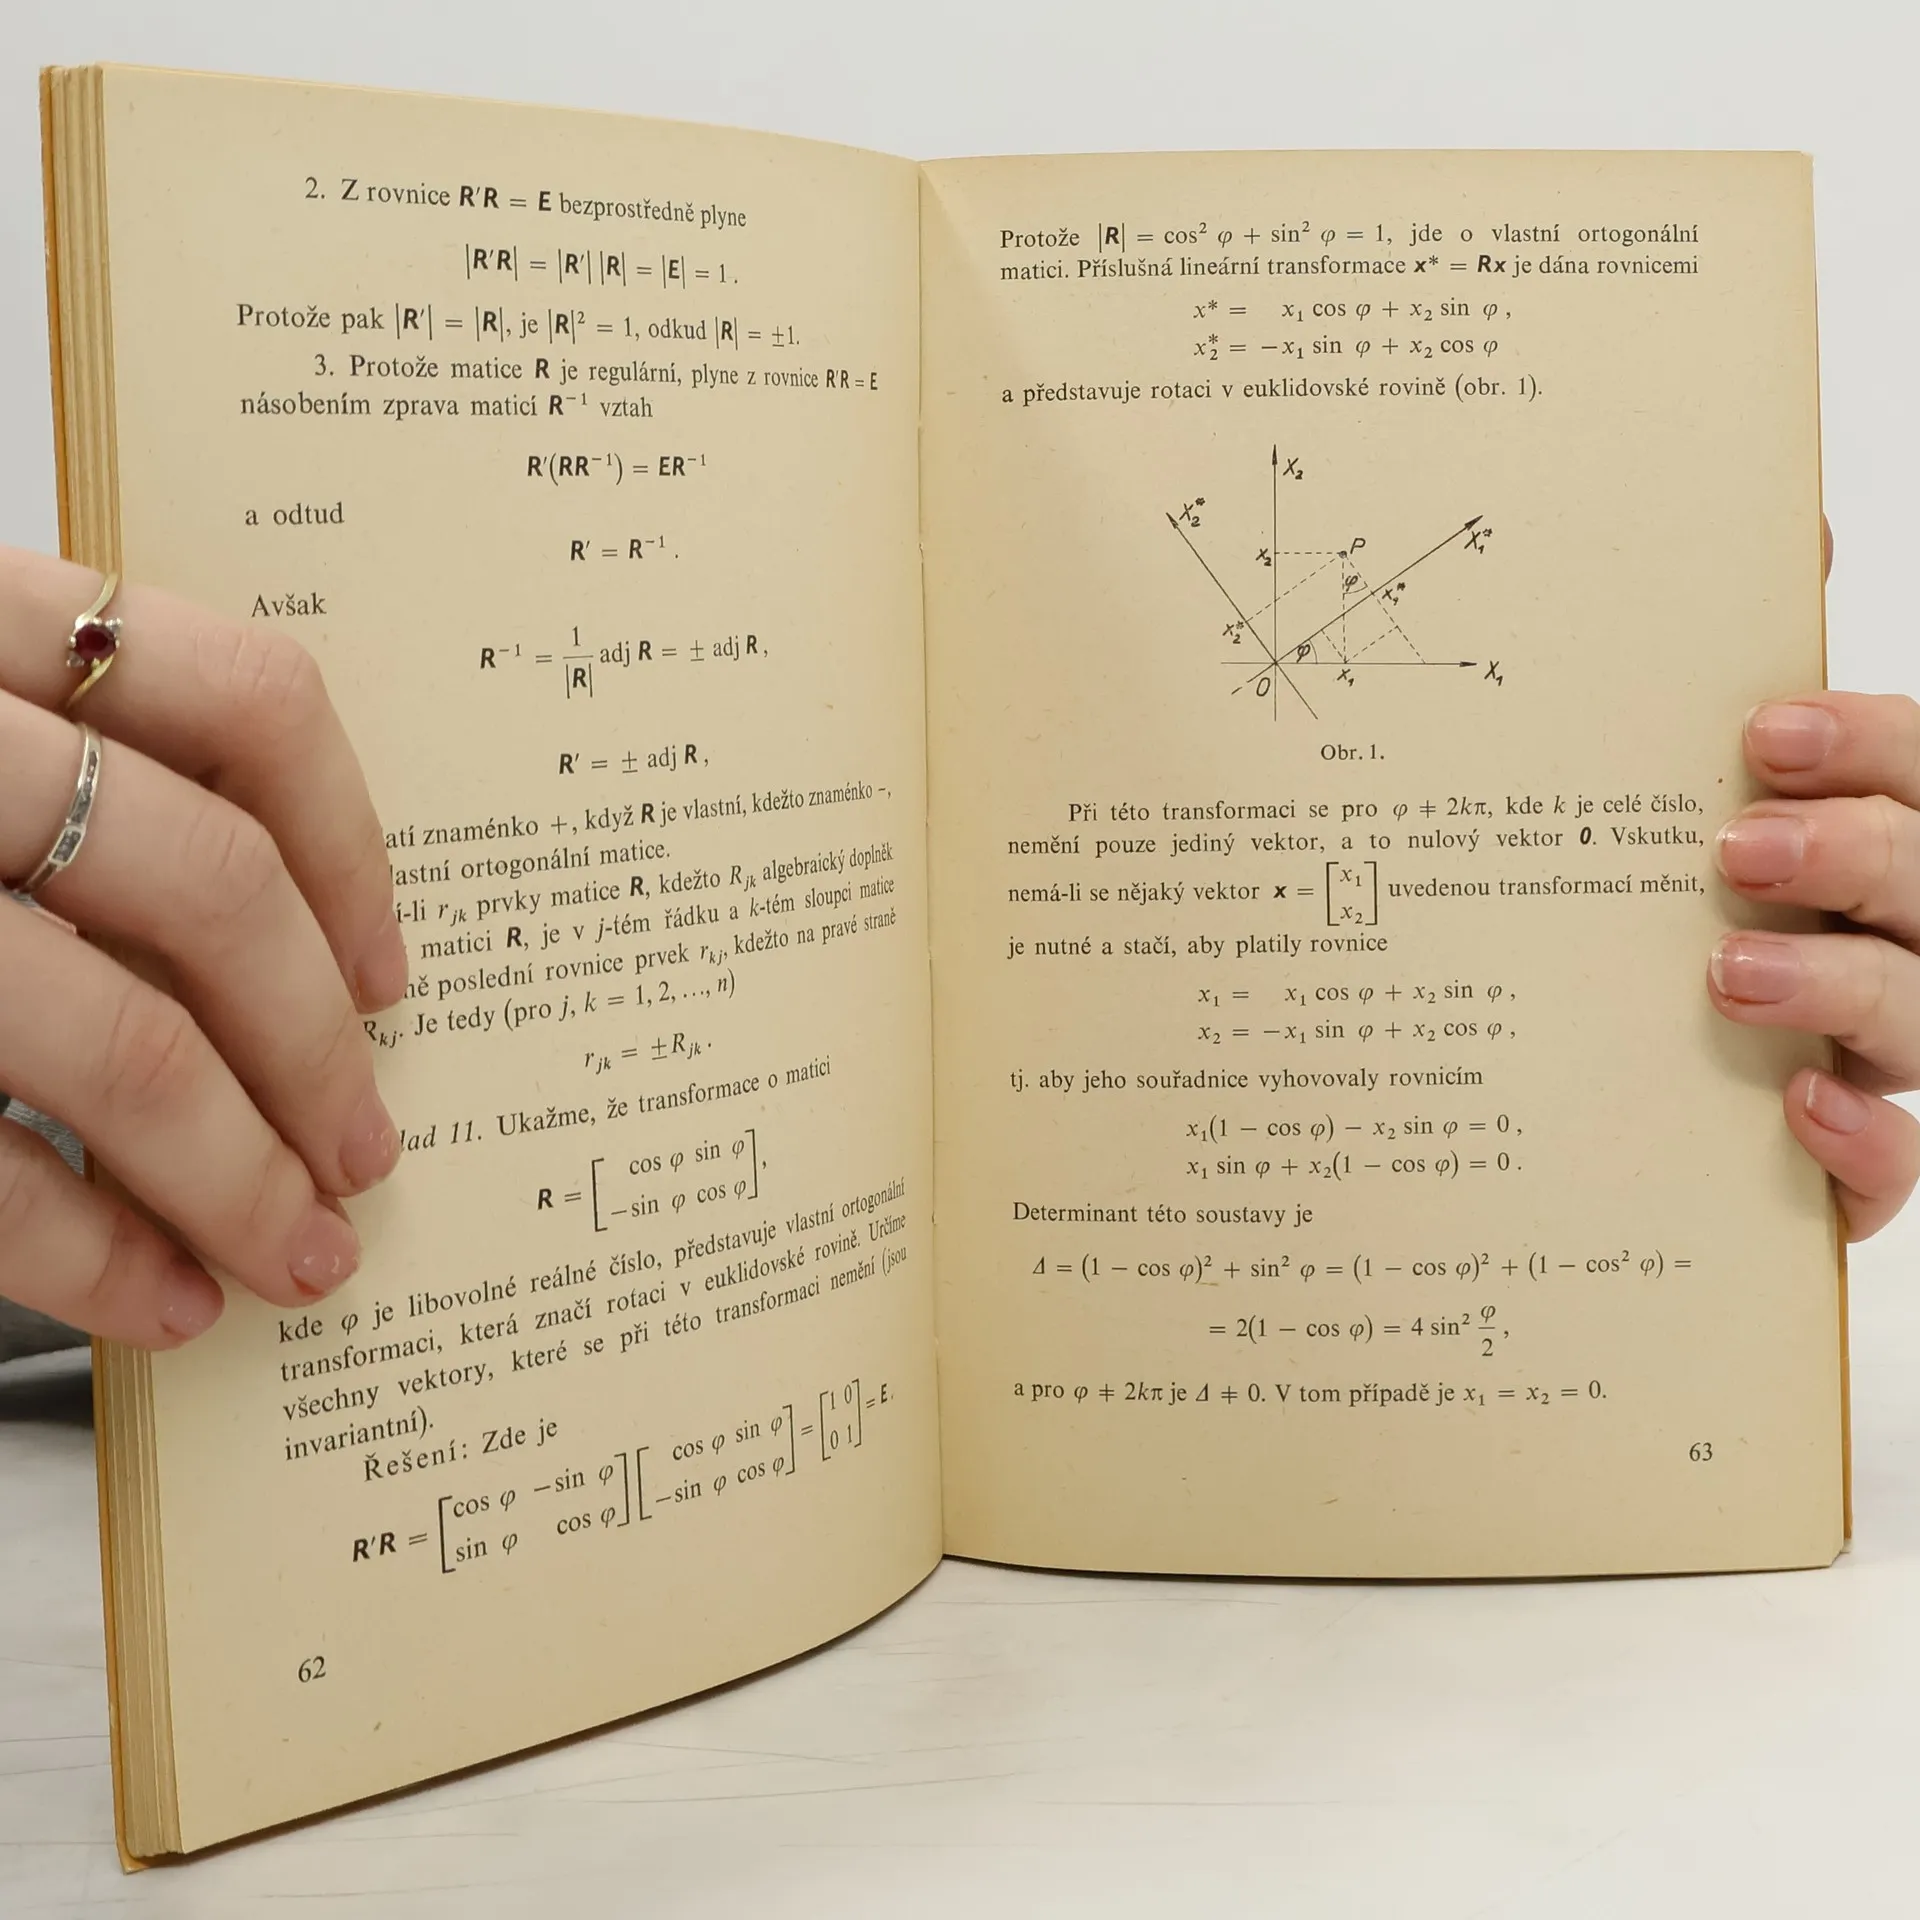 2. Z rovnice R′R = E bezprostředně plyne
|R′R| = |R′| |R| = |E| = 1.
Protože pak |R′| = |R|, je |R|² = 1, odkud |R| = ±1.
3. Protože matice R je regulární, plyne z rovnice R′R = E
násobením zprava maticí R⁻¹ vztah
R′(RR⁻¹) = ER⁻¹
a odtud
R′ = R⁻¹.
Avšak
R⁻¹ = 1/|R| adj R = ± adj R,
R′ = ± adj R,
znaménko +, když R je vlastní, kdežto znaménko −,
ortogonální matice.
r_jk prvky matice R, kdežto R_jk algebraický doplněk
matici R, je v j-tém řádku a k-tém sloupci matice
poslední rovnice prvek r_kj, kdežto na pravé straně
R_kj. Je tedy (pro j, k = 1, 2, ..., n)
r_jk = ±R_jk.
11. Ukažme, že transformace o matici
R = [cos φ sin φ
−sin φ cos φ],
kde φ je libovolné reálné číslo, představuje vlastní ortogonální
transformaci, která značí rotaci v euklidovské rovině. Určíme
všechny vektory, které se při této transformaci nemění (jsou
invariantní).
Řešení: Zde je
R′R = [cos φ −sin φ] [cos φ sin φ] = [1 0] = E.
[sin φ cos φ] [−sin φ cos φ] [0 1]
62
Protože |R| = cos² φ + sin² φ = 1, jde o vlastní ortogonální
matici. Příslušná lineární transformace x* = Rx je dána rovnicemi
x* = x₁ cos φ + x₂ sin φ,
x₂* = −x₁ sin φ + x₂ cos φ
a představuje rotaci v euklidovské rovině (obr. 1).
X₂
X₂*
X₁*
x₂
P
φ
x₁*
x₂*
φ
O
x₁
X₁
Obr. 1.
Při této transformaci se pro φ ≠ 2kπ, kde k je celé číslo,
nemění pouze jediný vektor, a to nulový vektor 0. Vskutku,
nemá-li se nějaký vektor x = [x₁
x₂] uvedenou transformací měnit,
je nutné a stačí, aby platily rovnice
x₁ = x₁ cos φ + x₂ sin φ,
x₂ = −x₁ sin φ + x₂ cos φ,
tj. aby jeho souřadnice vyhovovaly rovnicím
x₁(1 − cos φ) − x₂ sin φ = 0,
x₁ sin φ + x₂(1 − cos φ) = 0.
Determinant této soustavy je
Δ = (1 − cos φ)² + sin² φ = (1 − cos φ)² + (1 − cos² φ) =
= 2(1 − cos φ) = 4 sin² φ/2,
a pro φ ≠ 2kπ je Δ ≠ 0. V tom případě je x₁ = x₂ = 0.
63